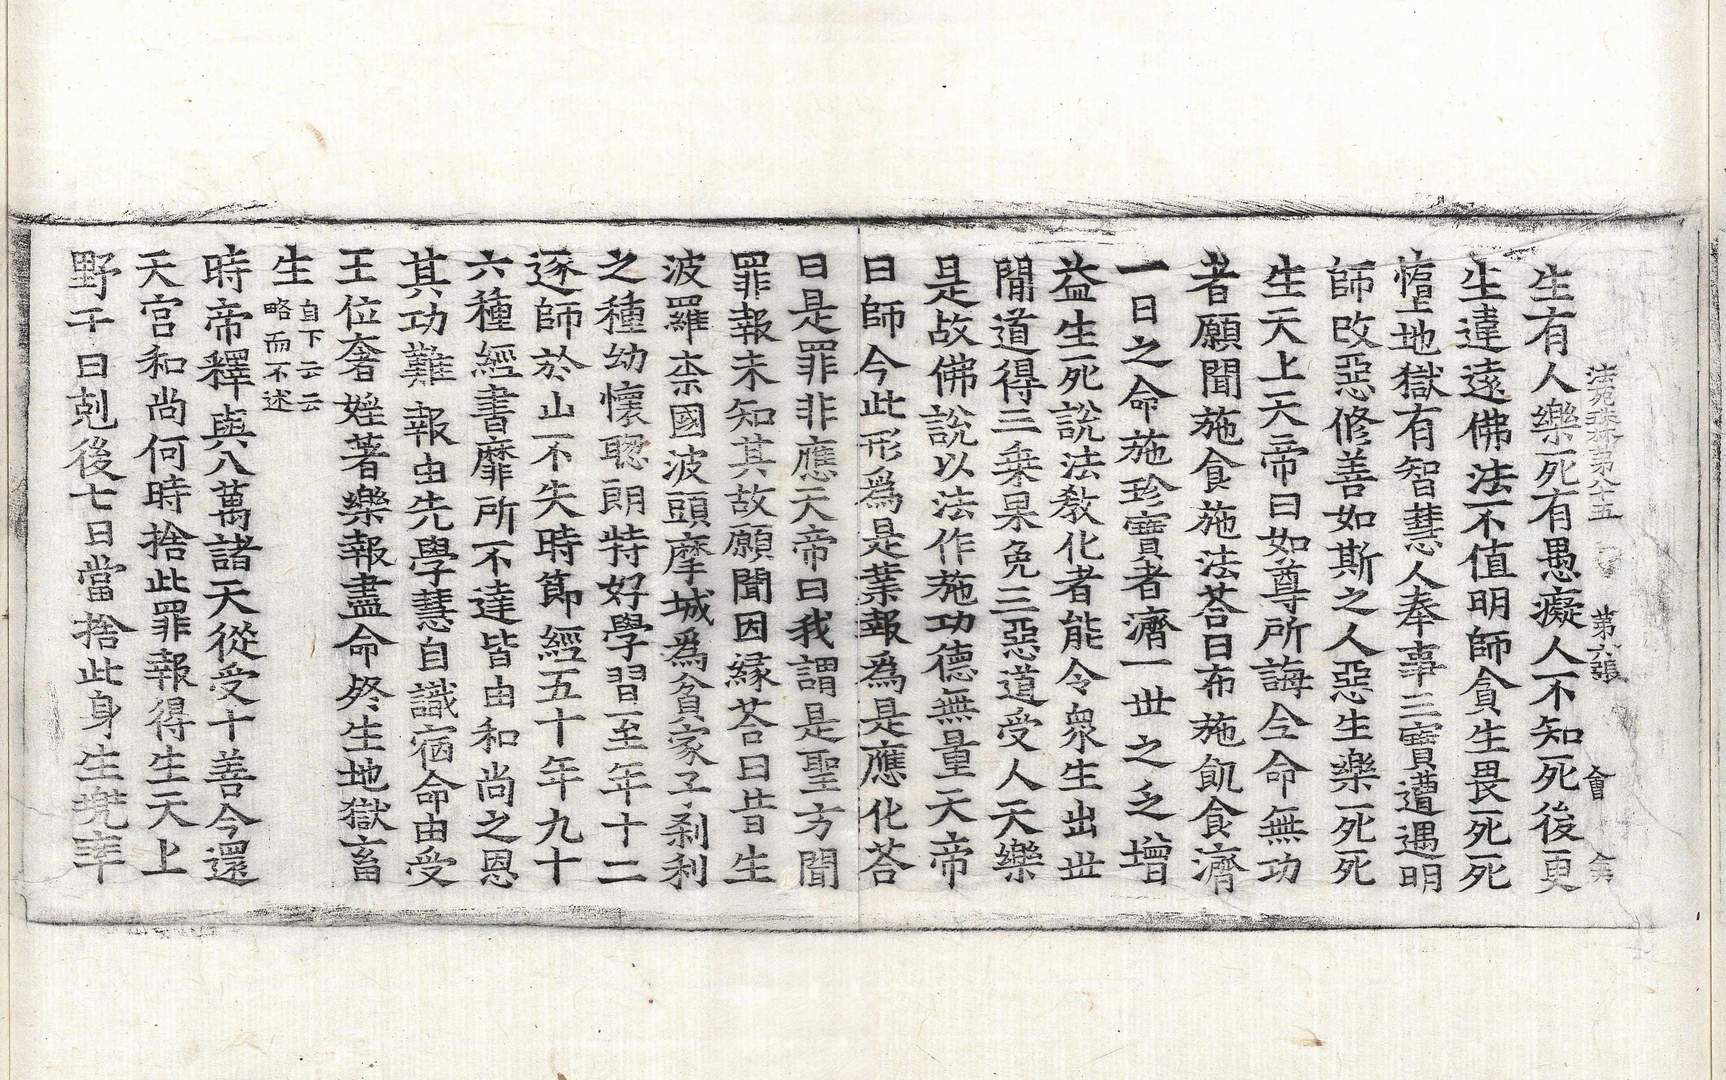 法苑珠林第六十五 第六張 會
生有人樂死有愚癡人不知死後更
生違遠佛法不值明師貪生畏死死
墮地獄有智慧人奉事三寶遭遇明
師改惡修善如斯之人惡生樂死死
生天上天帝曰如尊所誨全命無功
者願聞施食施法荅曰布施飢食濟
一日之命施珍寶者濟一世之乏增
益生死說法教化者能令衆生出世
閒道得三乗果免三惡道受人天樂
是故佛說以法作施功德無量天帝
曰師今此形爲是業報爲是應化荅
曰是罪非應天帝曰我謂是聖方聞
罪報未知其故願聞因緣荅曰昔生
波羅柰國波頭摩城爲貧家子剎利
之種幼懷聦朗特好學習至年十二
逐師於山不失時節經五十年九十
六種經書靡所不達皆由和尚之恩
其功難報由先學慧自識宿命由受
王位奢婬著樂報盡命終生地獄畜
生 自下云云
略而不述
時帝釋與八萬諸天從受十善今還
天宮和尚何時捨此罪報得生天上
野干曰剋後七日當捨此身生兠率